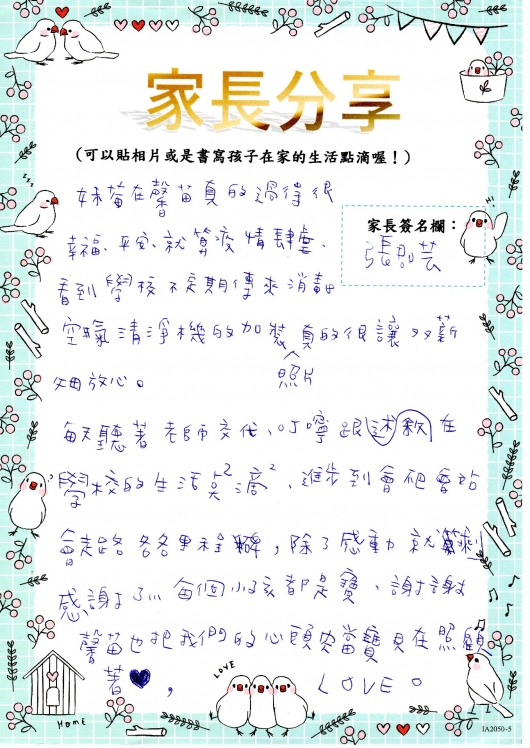 家長分享
(可以貼相片或是書寫孩子在家的生活點滴喔！)
妹茵在馨苗真的過得很
家長簽名欄：
幸福、平安、就算疫情肆虐、
看到學校不定期傳來消毒
空氣清淨機的加裝真的很讓双薪
照片
放心。
每天聽著老師交代、叮嚀跟述敘在
學校的生活點滴、進步到會爬會站
會走路各各里程碑，除了感動就剩
感謝了、每個小孩都是寶、謝謝
馨苗也把我們的心頭肉當寶貝在照顧
著♥，
LOVE。
Hi
LOVE
HOME
IA2050-5